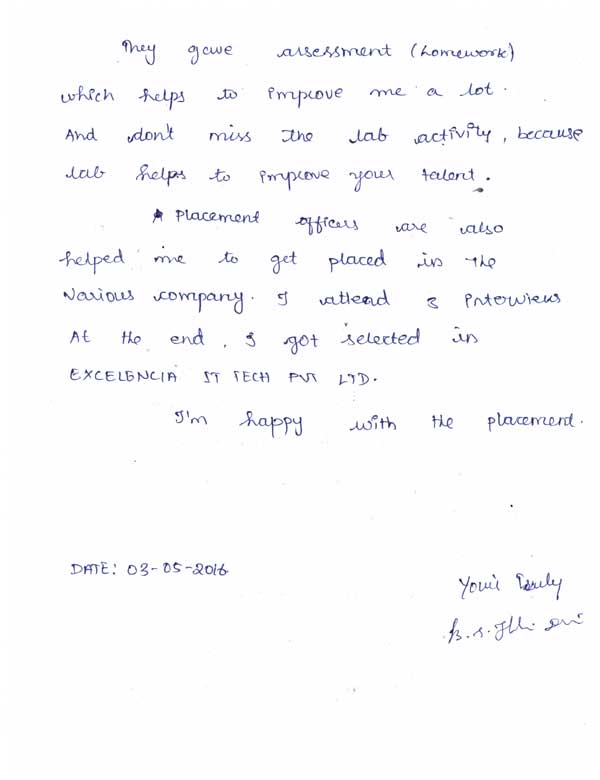 They gave assessment (homework)
which helps to improve me a lot.
And don't miss the lab activity, because
lab helps to improve your talent.
* Placement officers are also
helped me to get placed in the
Various company. I attend 3 Interviews
At the end, I got selected in
EXCELENCIA IT TECH PVT LTD.
I'm happy with the placement.
DATE: 03-05-2016
Your's Truly